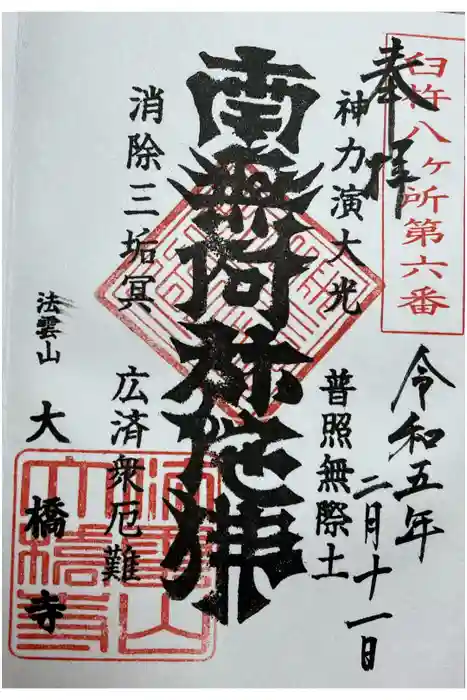 臼杵八ヶ所第六番
奉拝
令和五年
二月十一日
神力演大光
普照無際土
南無阿弥陀佛
消除三垢冥
広済衆厄難
法雲山
大橋寺
法雲山
大橋寺